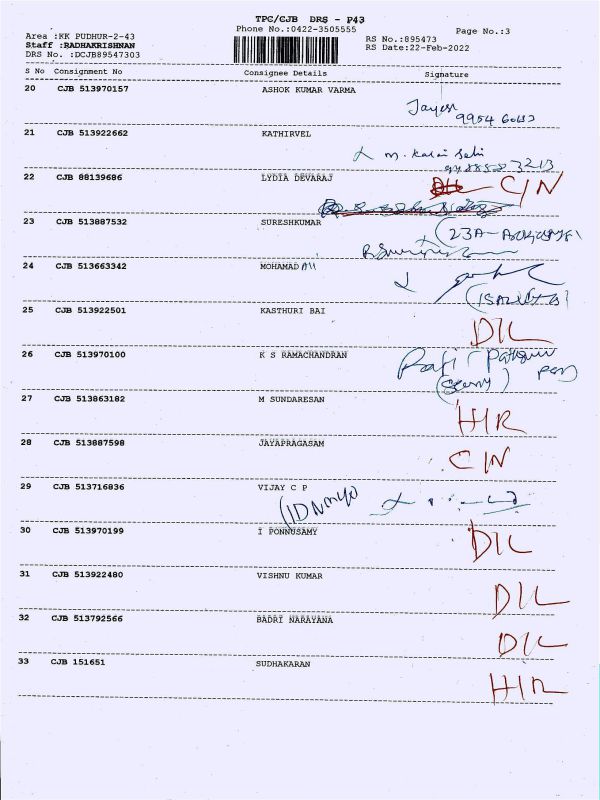 TPC/CJB DRS - P43
Phone No.:0422-3505555
Page No.:3
Area :KK PUDHUR-2-43
RS No.:895473
Staff :RADHAKRISHNAN
RS Date:22-Feb-2022
DRS No. :DCJB89547303
S No Consignment No Consignee Details Signature
20 CJB 513970157 ASHOK KUMAR VARMA
21 CJB 513922662 KATHIRVEL
22 CJB 88139686 LYDIA DEVARAJ
C/N
23 CJB 513887532 SURESHKUMAR
24 CJB 513663342 MOHAMAD Ali
25 CJB 513922501 KASTHURI BAI
D/L
26 CJB 513970100 K S RAMACHANDRAN
27 CJB 513863182 M SUNDARESAN
H/R
28 CJB 513887598 JAYAPRAGASAM
C/N
29 CJB 513716836 VIJAY C P
30 CJB 513970199 I PONNUSAMY
D/L
31 CJB 513922480 VISHNU KUMAR
D/L
32 CJB 513792566 BADRI NARAYANA
D/L
33 CJB 151651 SUDHAKARAN
H/R